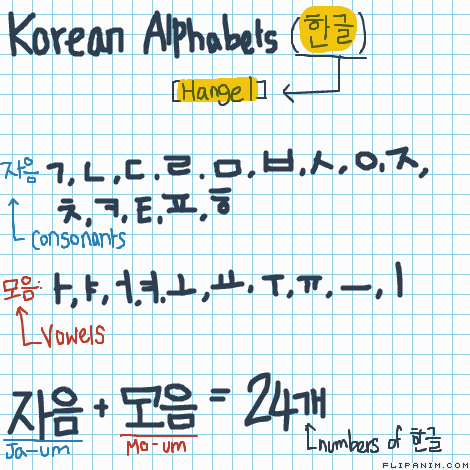 Korean Alphabets (한글)
[Hangel]
자음 ㄱ, ㄴ, ㄷ, ㄹ, ㅁ, ㅂ, ㅅ, ㅇ, ㅈ,
ㅊ, ㅋ, ㅌ, ㅍ, ㅎ
Consonants
모음: ㅏ, ㅑ, ㅓ, ㅕ, ㅗ, ㅛ, ㅜ, ㅠ, ㅡ, ㅣ
Vowels
자음 + 모음 = 24개
Ja-um Mo-um numbers of 한글
FLIPANIM.COM